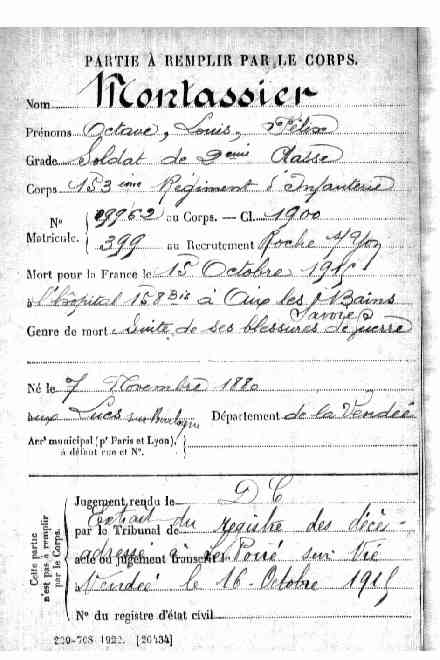 PARTIE À REMPLIR PAR LE CORPS.
Nom Montassier
Prénoms Octave, Louis, Félix
Grade Soldat de 2eme Classe
Corps 153ième Régiment d'Infanterie
N° Matricule. { 19962 au Corps. — Cl. 1900
399 au Recrutement Roche s/Yon
Mort pour la France le 15 Octobre 1915
à l'hôpital 158 Bis à Aix les Bains
(Savoie)
Genre de mort Suite de ses blessures de guerre
Né le 7 Novembre 1880
aux Lucs sur Boulogne Département de la Vendée
Arrt municipal (pr Paris et Lyon),
à défaut rue et N°.
Cette partie n'est pas à remplir par le Corps.
Jugement rendu le D C
Extrait du registre des décès
par le Tribunal de
acte ou jugement transcrit
adressé à le Poiré sur Vie
Vendée le 16 Octobre 1915
N° du registre d'état civil
220-708 1922. [26434]